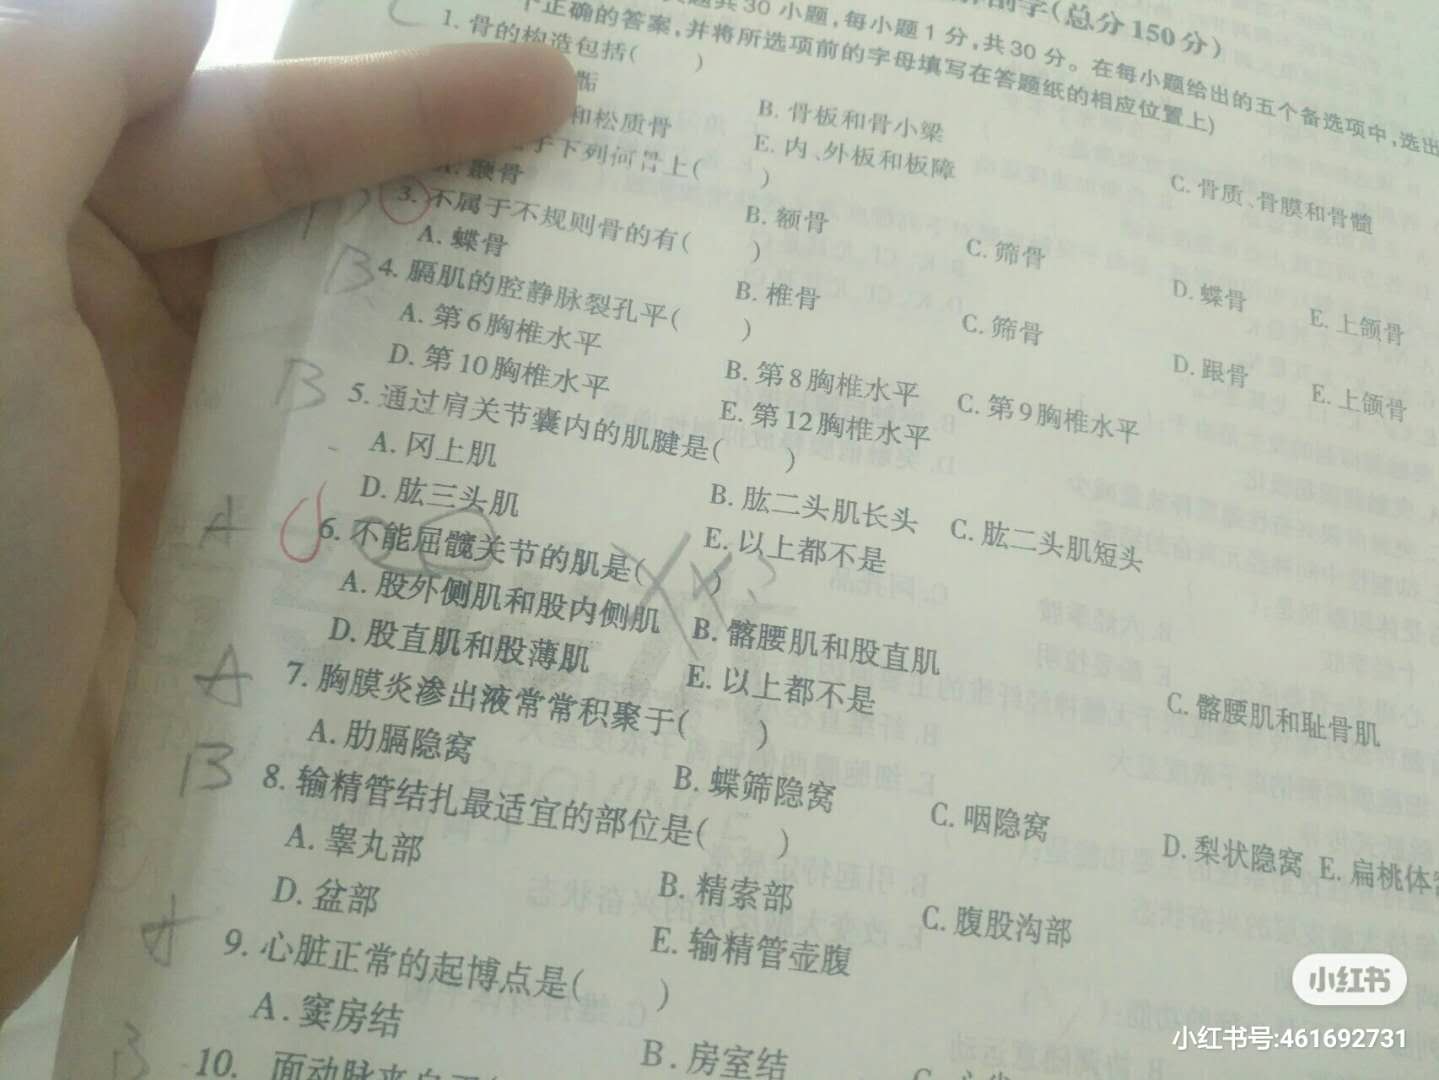 剖学(总分150分)
共30小题,每小题1分,共30分。在每小题给出的五个备选项中,选出
个正确的答案,并将所选项前的字母填写在答题纸的相应位置上)
1. 骨的构造包括( )
B. 骨板和骨小梁
C. 骨质、骨膜和骨髓
和松质骨
E. 内、外板和板障
于下列何骨上( )
A. 颞骨
B. 额骨
C. 筛骨
D. 蝶骨
E. 上颌骨
3. 不属于不规则骨的有( )
A. 蝶骨
B. 椎骨
C. 筛骨
D. 跟骨
E. 上颌骨
B
4. 膈肌的腔静脉裂孔平( )
A. 第6胸椎水平
B. 第8胸椎水平
C. 第9胸椎水平
D. 第10胸椎水平
E. 第12胸椎水平
B
5. 通过肩关节囊内的肌腱是( )
A. 冈上肌
B. 肱二头肌长头
C. 肱二头肌短头
D. 肱三头肌
E. 以上都不是
A
6. 不能屈髋关节的肌是( )
A. 股外侧肌和股内侧肌
B. 髂腰肌和股直肌
C. 髂腰肌和耻骨肌
D. 股直肌和股薄肌
E. 以上都不是
A
7. 胸膜炎渗出液常常积聚于( )
A. 肋膈隐窝
B. 蝶筛隐窝
C. 咽隐窝
D. 梨状隐窝
E. 扁桃体
B
8. 输精管结扎最适宜的部位是( )
A. 睾丸部
B. 精索部
C. 腹股沟部
D. 盆部
E. 输精管壶腹
A
9. 心脏正常的起博点是( )
A. 窦房结
B. 房室结
B
10. 面动脉来自于(
小红书
小红书号:461692731